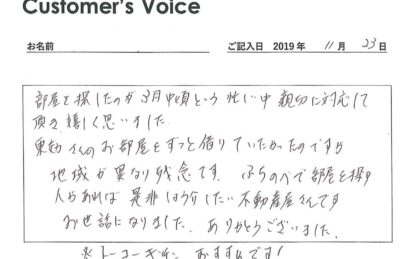 Customer's Voice
お名前 ご記入日 2019年 11月 23日
部屋を探したのが3月中頃という忙しい中親切に対応して
頂き嬉しく思いました
さんのお部屋をずっと借りていたかったのですが
地域が異なり残念です。 で部屋を探す
人があれば是非紹介したい不動産屋さんです
お世話になりました。ありがとうございました。
※ おすすめです!